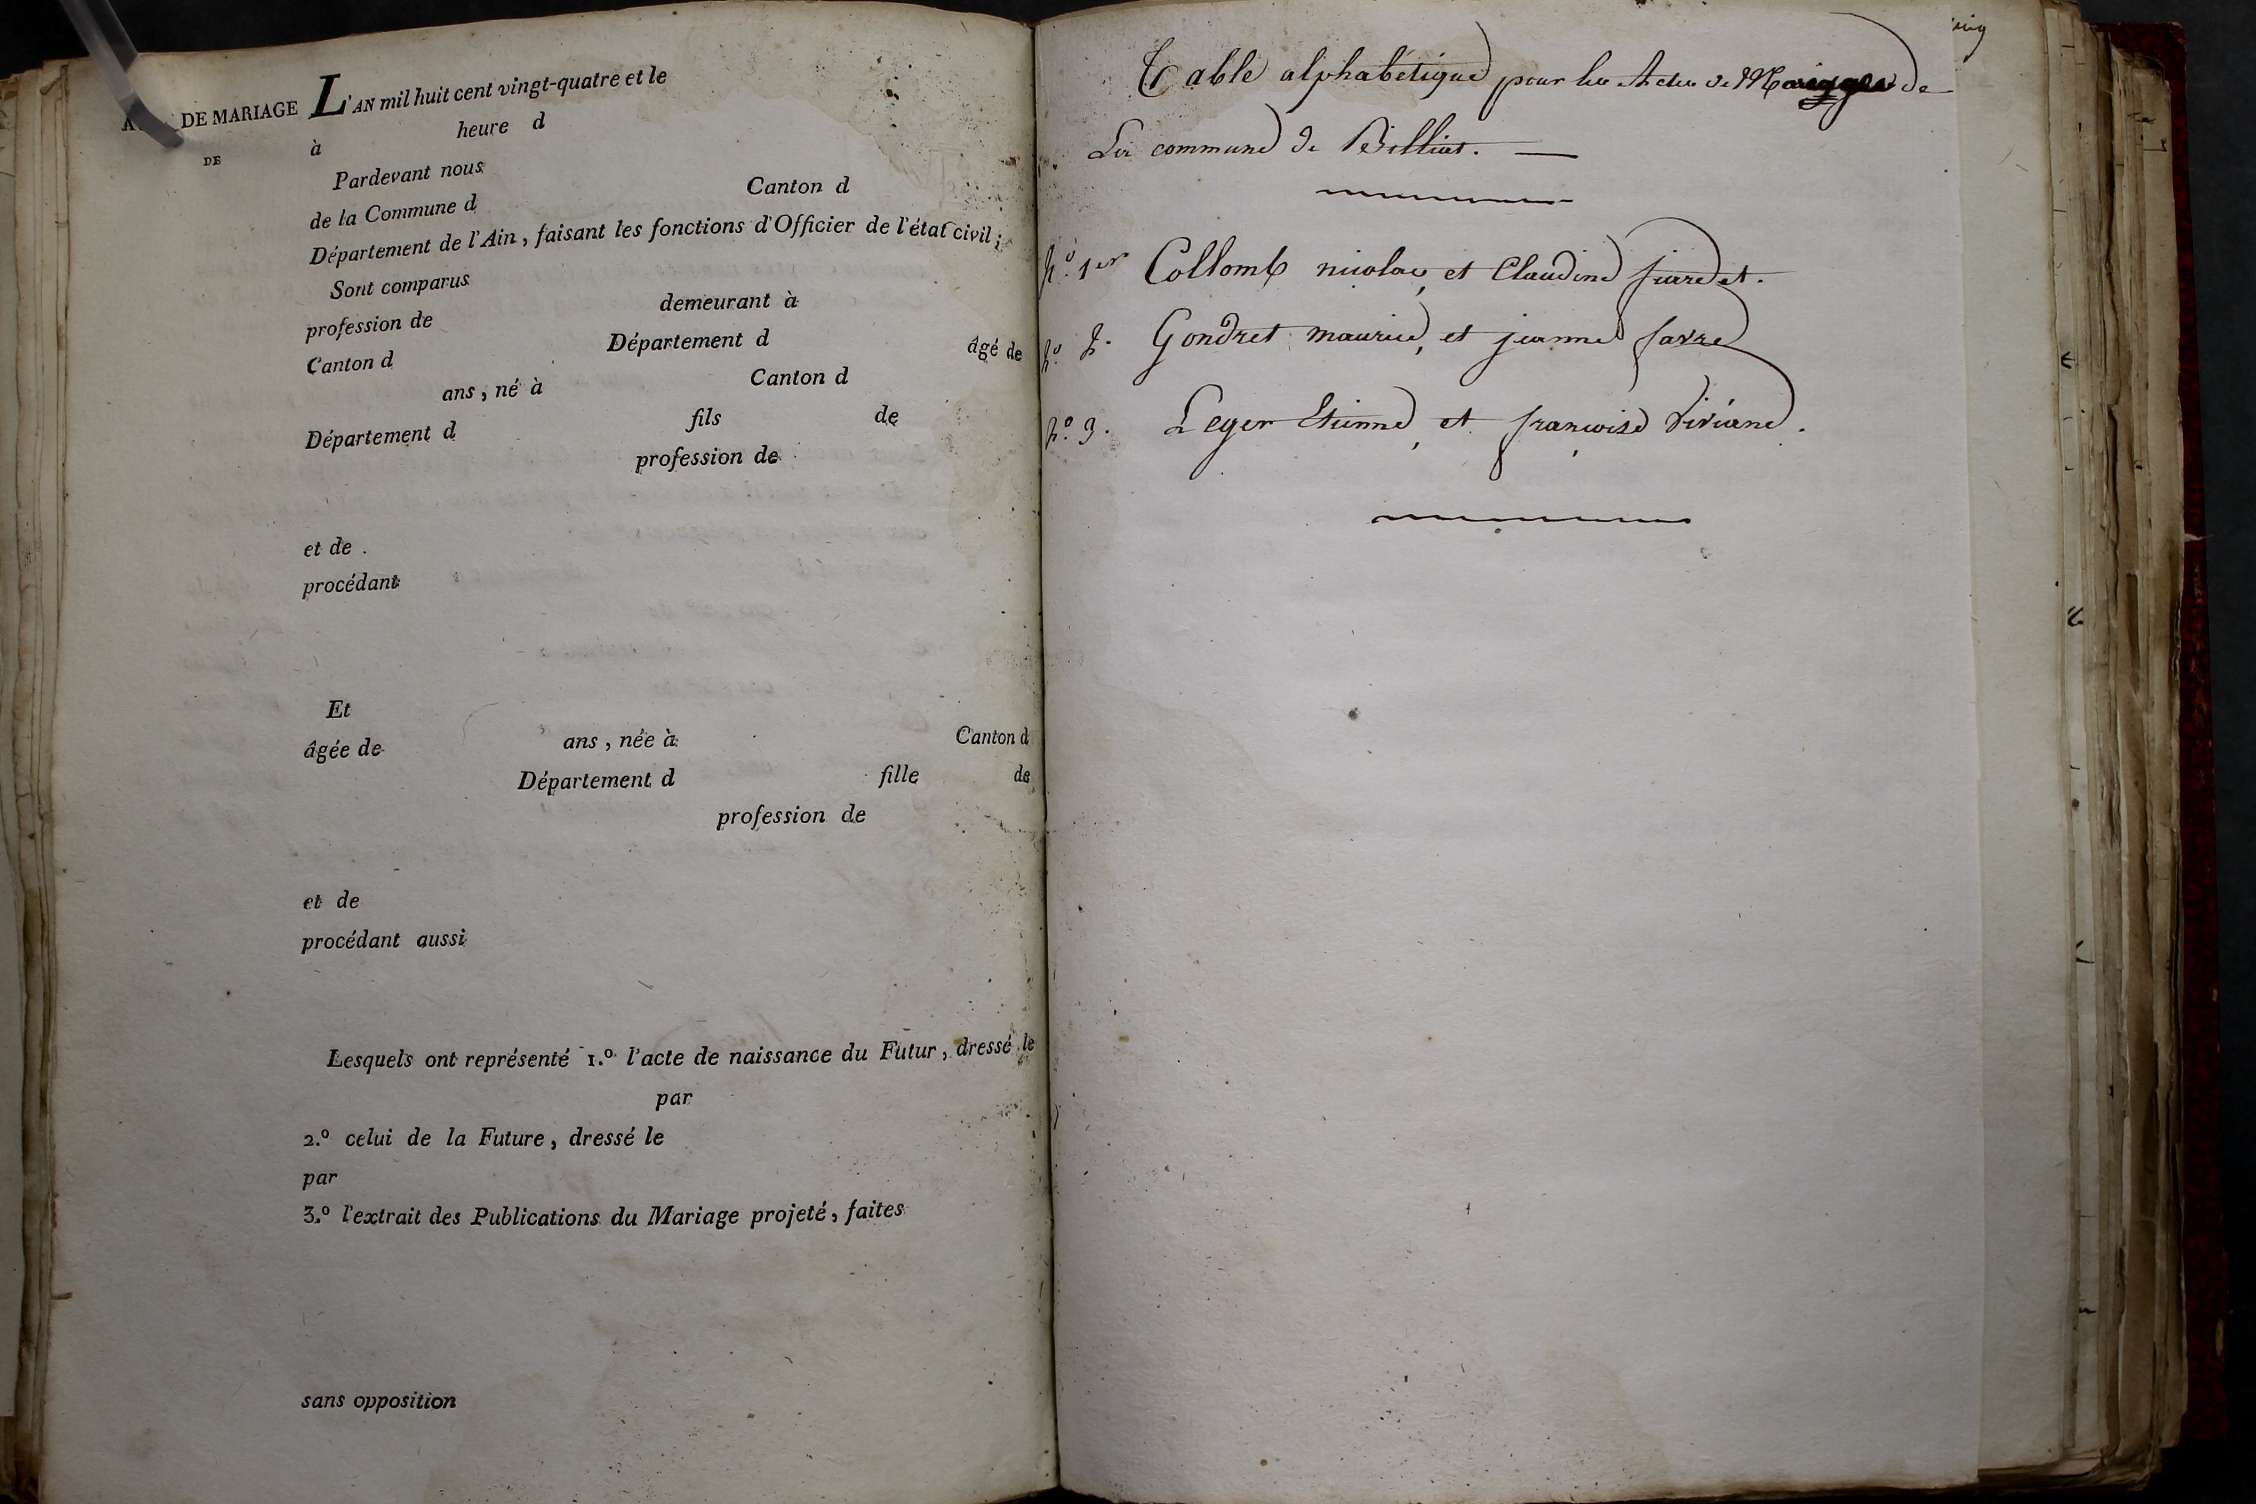 DE MARIAGE
DE
L'AN mil huit cent vingt-quatre et le
à heure d
Pardevant nous
de la Commune d Canton d
Département de l'Ain, faisant les fonctions d'Officier de l'état civil;
Sont comparus
profession de demeurant à
Canton d Département d âgé de
ans, né à Canton d
Département d fils de
profession de
et de
procédant
Et
âgée de ans, née à Canton d
Département d fille de
profession de
et de
procédant aussi
Lesquels ont représenté 1.º l'acte de naissance du Futur, dressé le
par
2.º celui de la Future, dressé le
par
3.º l'extrait des Publications du Mariage projeté, faites
sans opposition
Table alphabétique pour les Actes de Mariages de
La commune de Billiat.
nº. 1er Collomb nicolas, et Claudine
nº. 2. Gondret maurice, et jeanne favre
nº. 3. Leger Etienne, et françoise Viviane.